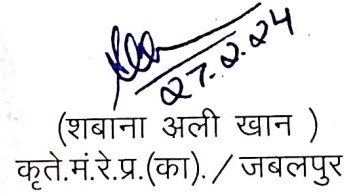 27.2.24
(शबाना अली खान )
कृते.मं.रे.प्र.(का)./ जबलपुर